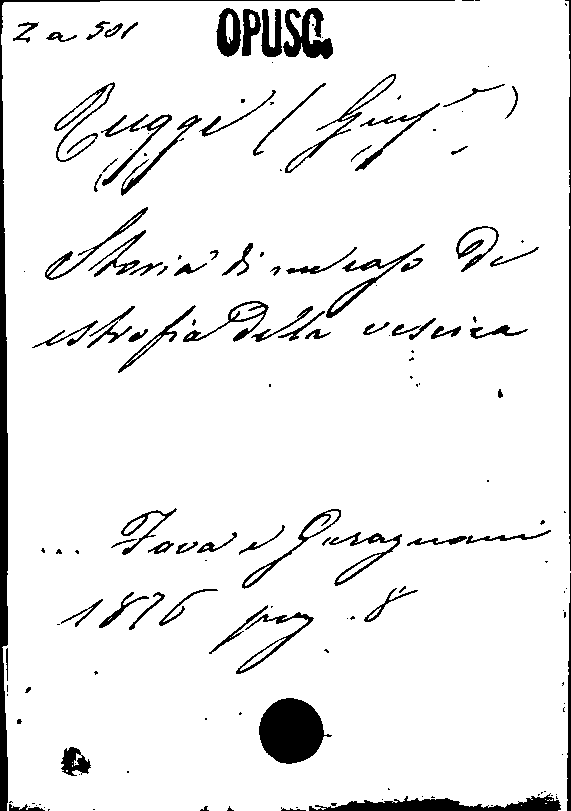 Z a 501
OPUSC.
Ruggi (Gius.e)
Storia di un caso di
estrofia della vescica
... Fava e Garagnani
1876 pag. 8